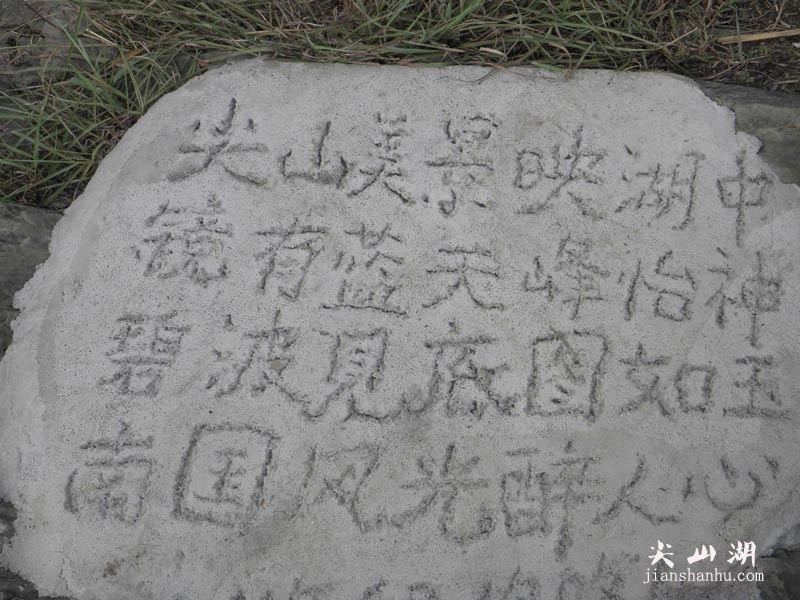 尖山美景映湖中
镜有蓝天峰怡神
碧波见底图如玉
南国风光醉人心
尖山湖
jianshanhu.com